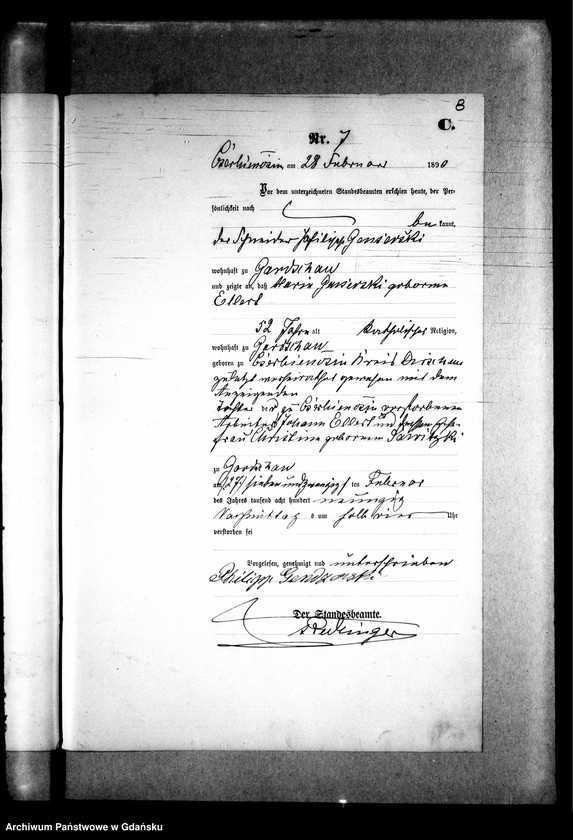 8
C.
Nr. 7
Czerbienczin am 28 Februar 1890
Vor dem unterzeichneten Standesbeamten erschien heute, der Per-
sönlichkeit nach
be kannt,
der Schneider Philipp
wohnhaft zu Gardschau
und zeigte an, daß Maria geborene
Ellert
52 Jahre alt katholischer Religion,
wohnhaft zu Gardschau
geboren zu Czerbienczin Kreis Dirschau
zuletzt verheirathet gewesen mit dem
Anzeigenden
Tochter der zu Czerbienczin verstorbenen
Johann Ellert und dessen Ehe-
frau Christine geborenen
zu Gardschau
am (27) sieben und zwanzig ten Februar
des Jahres tausend acht hundert neunzig
Nachmittag s um halb vier Uhr
verstorben sei
Vorgelesen, genehmigt und unterschrieben
Philipp
Der Standesbeamte.
Archiwum Państwowe w Gdańsku